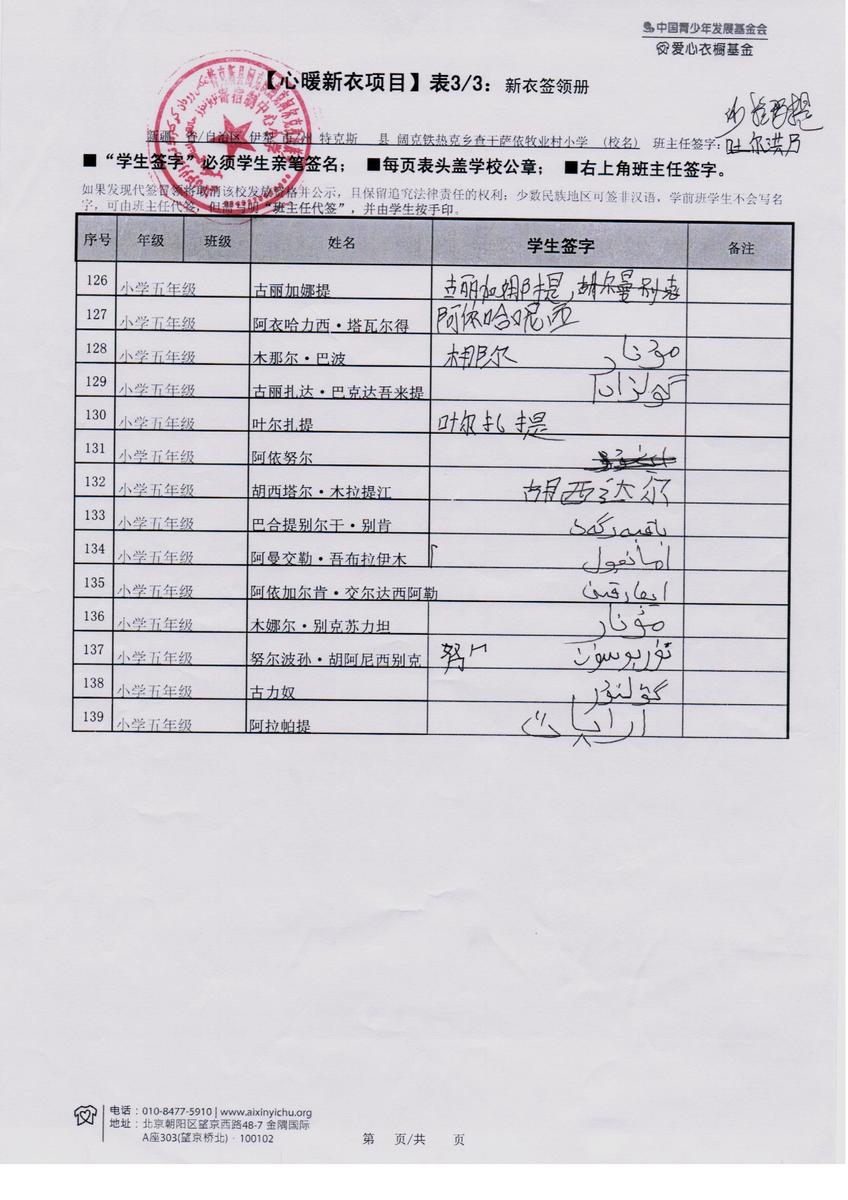 中国青少年发展基金会
爱心衣橱基金
【心暖新衣项目】表3/3：新衣签领册
新疆 省/自治区 伊犁 市/州 特克斯 县 阔克铁热克乡查干萨依牧业村小学 （校名） 班主任签字: 吐尔洪乃
■“学生签字”必须学生亲笔签名； ■每页表头盖学校公章； ■右上角班主任签字。
如果发现代签冒领将取消该校发放资格并公示，且保留追究法律责任的权利；少数民族地区可签非汉语，学前班学生不会写名
字，可由班主任代签，但需写明“班主任代签”，并由学生按手印。
序号 年级 班级 姓名 学生签字 备注
126 小学五年级 古丽加娜提 古丽加娜提，胡尔曼别克
127 小学五年级 阿衣哈力西·塔瓦尔得 阿依哈呢西
128 小学五年级 木那尔·巴波 木那尔 مۇنار
129 小学五年级 古丽扎达·巴克达吾来提 گولزادا
130 小学五年级 叶尔扎提 叶尔扎提
131 小学五年级 阿依努尔
132 小学五年级 胡西塔尔·木拉提江 胡西达尔
133 小学五年级 巴合提别尔干·别肯
134 小学五年级 阿曼交勒·吾布拉伊木 امانجول
135 小学五年级 阿依加尔肯·交尔达西阿勒
136 小学五年级 木娜尔·别克苏力坦 مۇنار
137 小学五年级 努尔波孙·胡阿尼西别克 努 نۇربوسىن
138 小学五年级 古力奴 گۇلنۇر
139 小学五年级 阿拉帕提
电话：010-8477-5910 | www.aixinyichu.org
地址：北京朝阳区望京西路48-7 金隅国际
A座303(望京桥北) · 100102
第 页/共 页